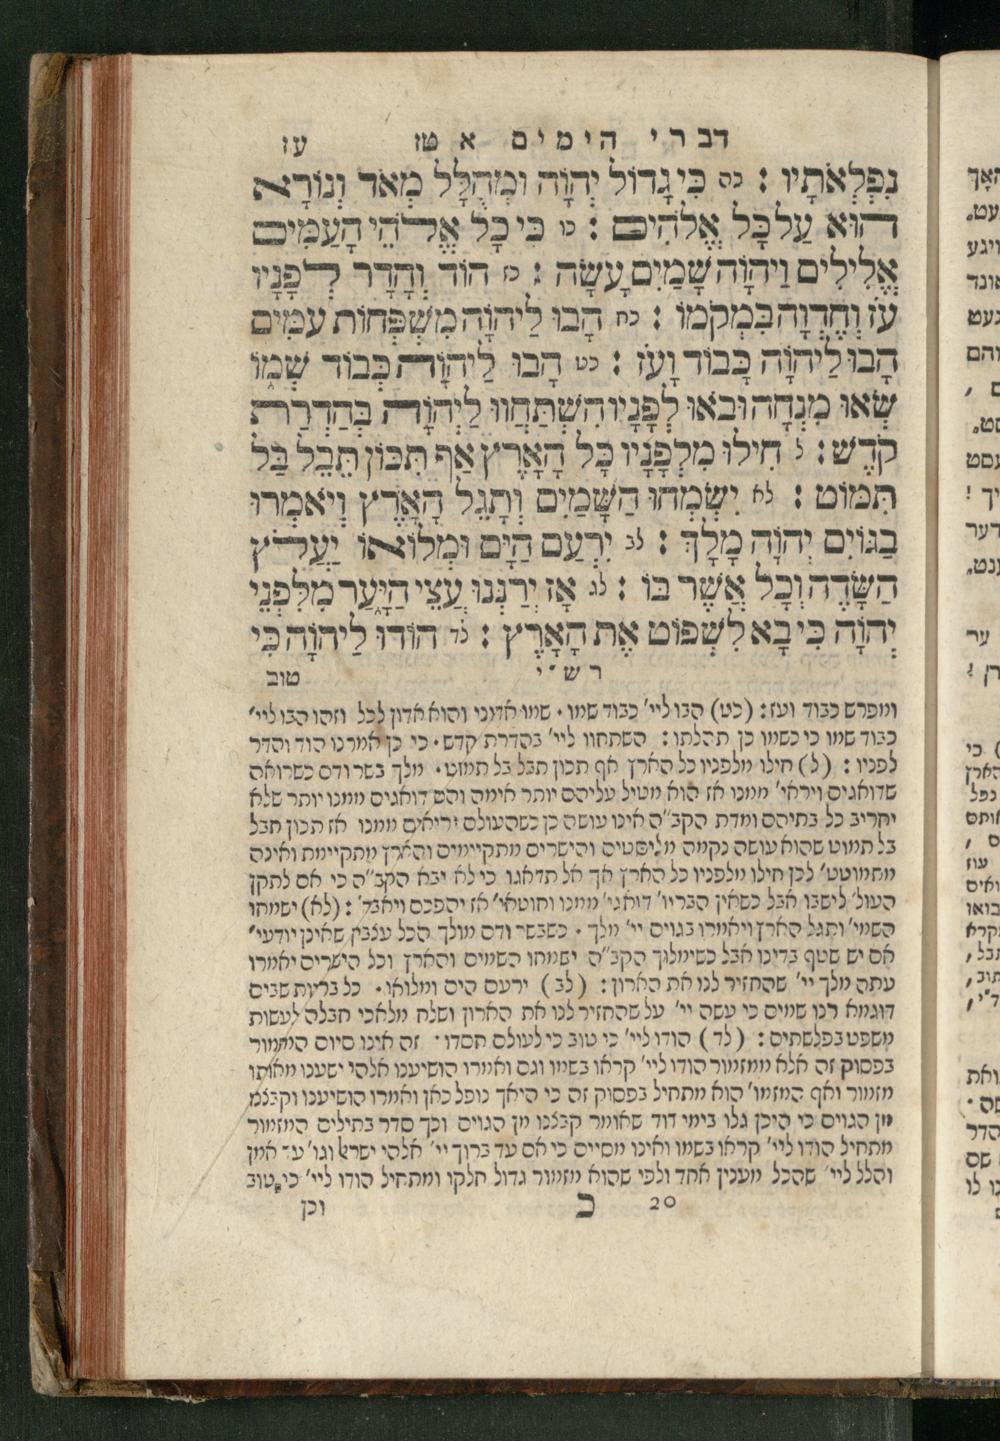 דברי הימים א טז עז
נִפְלְאֹתָיו : כה כִּי גָדוֹל יְהוָֹה וּמְהֻלָּל מְאֹד וְנוֹרָא
הוּא עַל כָּל אֱלֹהִים : כו כִּי כָּל אֱלֹהֵי הָעַמִּים
אֱלִילִים וַיהוָֹה שָׁמַיִם עָשָׂה : כז הוֹד וְהָדָר לְפָנָיו
עֹז וְחֶדְוָה בִּמְקֹמוֹ : כח הָבוּ לַיהוָֹה מִשְׁפְּחוֹת עַמִּים
הָבוּ לַיהוָֹה כָּבוֹד וָעֹז : כט הָבוּ לַיהוָֹה כְּבוֹד שְׁמוֹ
שְׂאוּ מִנְחָה וּבֹאוּ לְפָנָיו הִשְׁתַּחֲווּ לַיהוָֹה בְּהַדְרַת
קֹדֶשׁ : ל חִילוּ מִלְּפָנָיו כָּל הָאָרֶץ אַף תִּכּוֹן תֵּבֵל בַּל
תִּמּוֹט : לא יִשְׂמְחוּ הַשָּׁמַיִם וְתָגֵל הָאָרֶץ וְיֹאמְרוּ
בַגּוֹיִם יְהוָֹה מָלָךְ : לב יִרְעַם הַיָּם וּמְלוֹאוֹ יַעֲלֹץ
הַשָּׂדֶה וְכָל אֲשֶׁר בּוֹ : לג אָז יְרַנְּנוּ עֲצֵי הַיָּעַר מִלִּפְנֵי
יְהוָֹה כִּי בָא לִשְׁפּוֹט אֶת הָאָרֶץ : לד הוֹדוּ לַיהוָֹה כִּי
רש״י טוב
ומפרש כבוד ועז : (כט) הבו ליי׳ כבוד שמו . שמו אדמני והוא אדון לכל וזהו הבו ליי׳
כבוד שמו כי כשמו כן תהלתו : השתחוו ליי׳ בהדרת קדש . כי כן אמרנו הוד והדר
לפניו : (ל) חילו מלפניו כל הארץ אף תכון תבל בל תמוט . מלך בשר ודם כשרואה
שדואגים ויראי׳ ממנו אז הוא מטיל עליהם יותר אימה והם דואגים ממנו יותר שלא
יחריב כל בתיהם ומדת הקב״ה אינו עושה כן כשהעולם יריאים ממנו אז תכון תבל
בל תמוט שהוא עושה נקמה מליסטים והישרים מתקיימים והארץ מתקיימת ואינה
מתמוטט׳ לכן חילו מלפניו כל הארץ אך אל תדאגו כי לא יבא הקב״ה כי אם לתקן
העול׳ לישבו אבל כשאין הבריו׳ דואגי׳ ממנו וחוטאי׳ אז יהפכם ויאבד׳ : (לא) ישמחו
השמי׳ ותגל הארץ ויאמרו בגוים יי׳ מלך . כשבשר ודם מולך הכל עצבין שאינן יודעי׳
אם יש שטף בדינו אבל כשימלוך הקב״ה ישמחו השמים והארץ וכל הישרים יאמרו
עתה מלך יי׳ שהחזיר לנו את הארון : (לב) ירעם הים ומלואו . כל בריות שבים
דוגמא רנו שמים כי עשה יי׳ על שהחזיר לנו את הארון ושלח מלאכי חבלה לעשות
משפט בפלשתים : (לד) הודו ליי׳ כי טוב כי לעולם חסדו . זה אינו סיום המזמור
בפסוק זה אלא ממזמור הודו ליי׳ קראו בשמו וגם ואמרו הושיענו אלהי ישענו מאותו
מזמור ואף המזמו׳ הוא מתחיל בפסוק זה כי היאך נופל כאן ואמרו הושיענו וקבצנו
מן הגוים כי היכן גלו בימי דוד שאומר קבצנו מן הגוים וכך סדר בתילים המזמור
מתחיל הודו ליי׳ קראו בשמו ואינו מסיים כי אם עד ברוך יי׳ אלהי ישראל וגו׳ עד אמן
והלל ליי׳ שהכל מענין אחד ולפי שהוא מזמור גדול חלקו ומתחיל הודו ליי׳ כי טוב
20 כ וכן